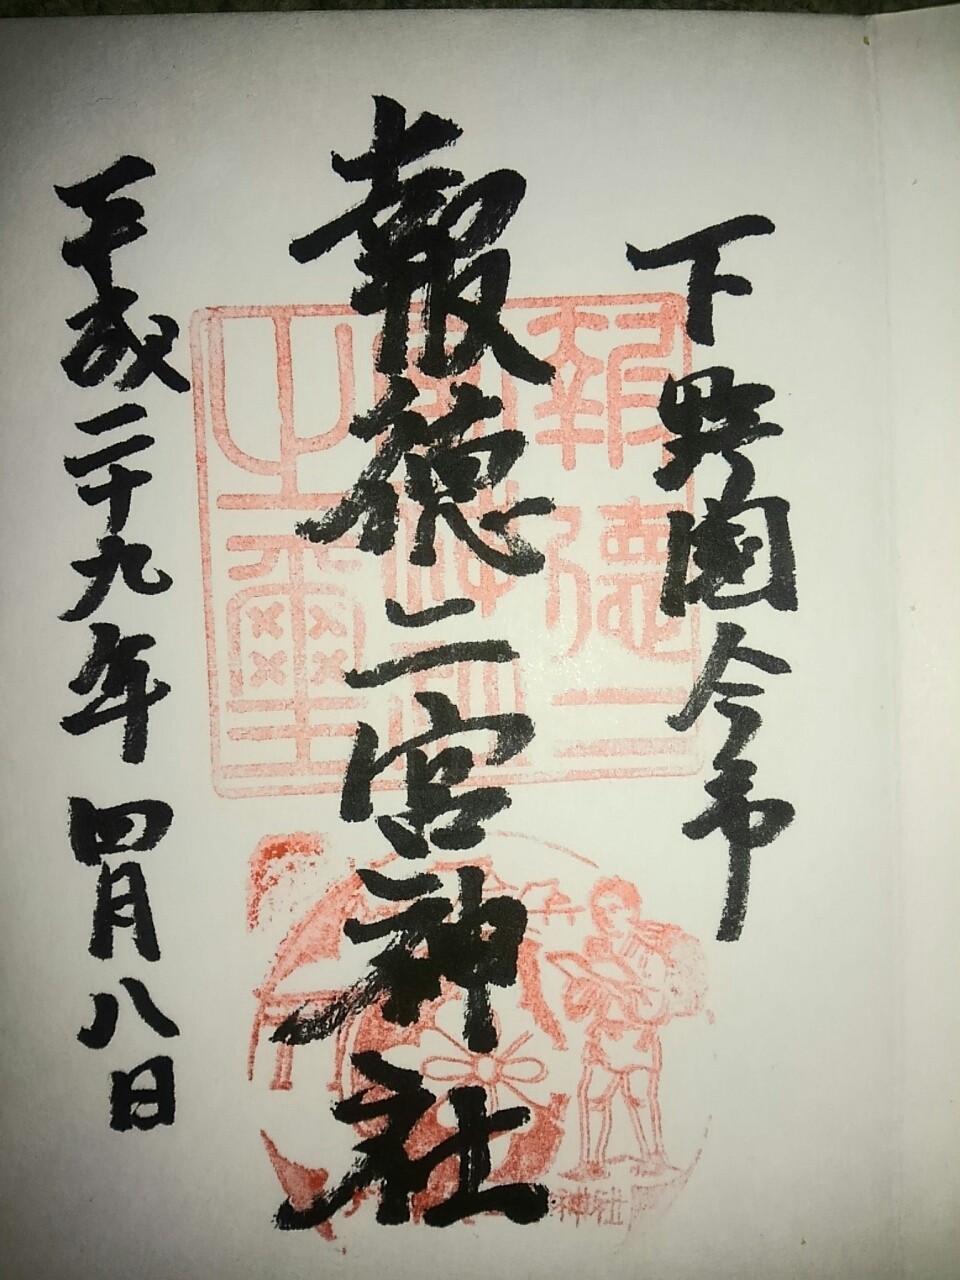 下野國今市
報徳二宮神社
平成二十九年四月八日
報徳二
宮神社
之璽
神社